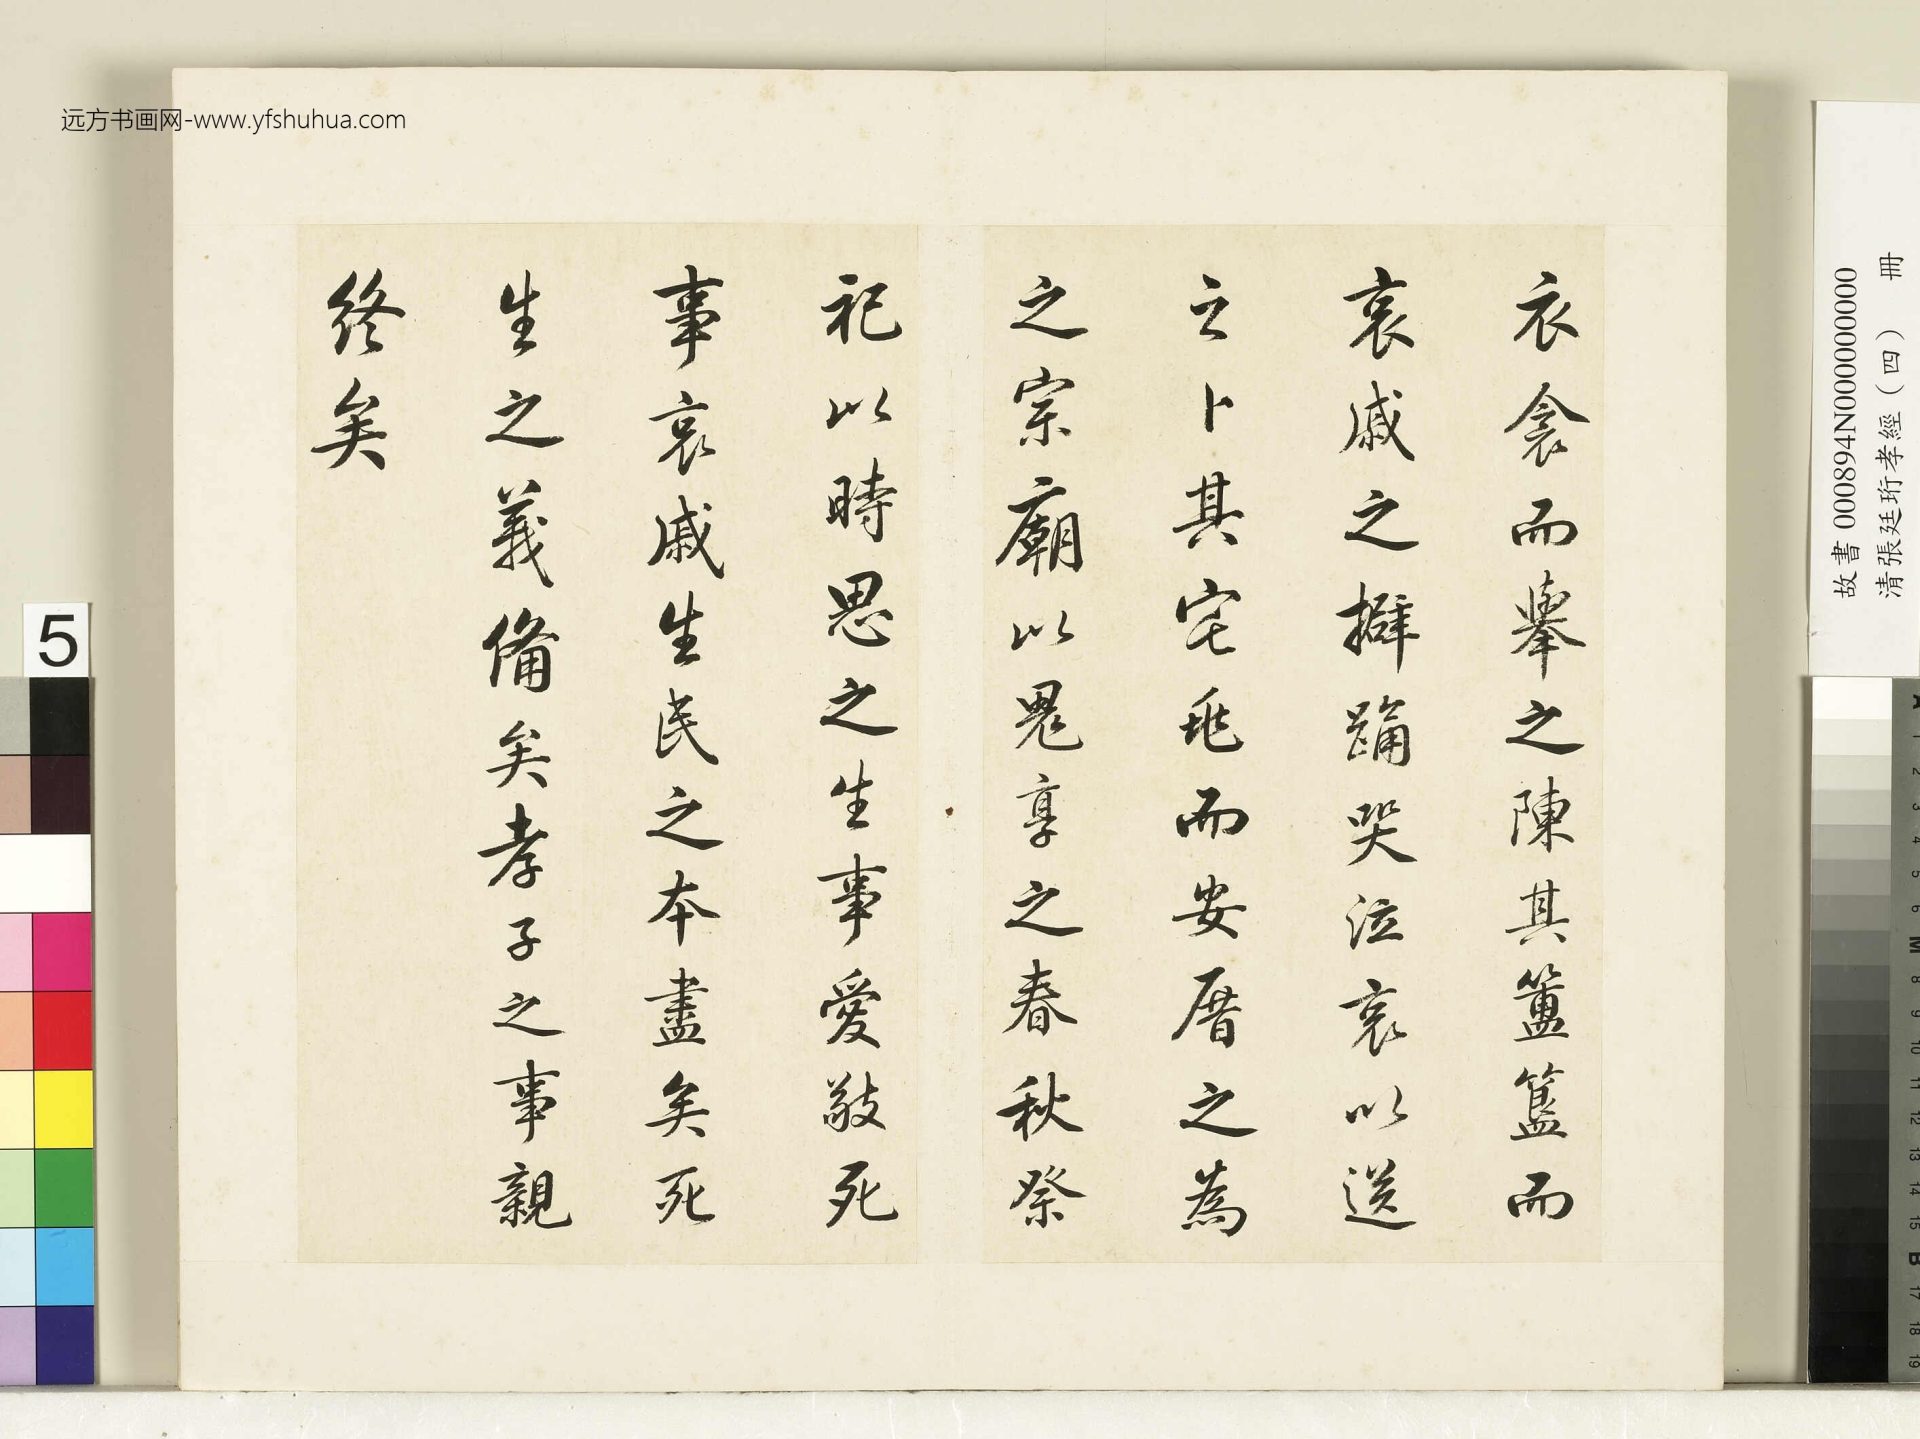 衣衾而舉之陳其簠簋而
哀戚之擗踊哭泣哀以送
之卜其宅兆而安厝之為
之宗廟以鬼享之春秋祭
祀以時思之生事愛敬死
事哀戚生民之本盡矣死
生之義備矣孝子之事親
終矣
远方书画网-www.yfshuhua.com
故書 000894N000000000
清張廷珩孝經(四) 冊
5
A 1 2 3 4 5 6 M 8 9 10 11 12 13 14 15 B 17 18 19